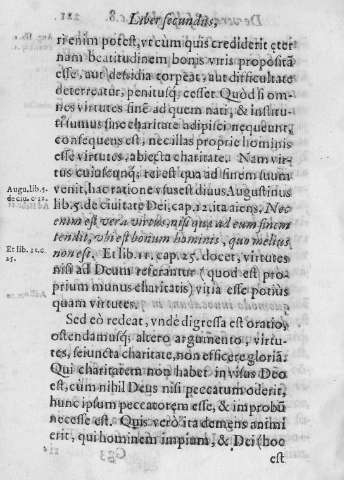 Liber secundus.
ri enim potest, vt cùm quis crediderit æter
nam beatitudinem bonis viris propositã
esse, aut desidia torpeat, aut difficultate
deterreatur, penitusq; cesset. Quòd si om-
nes virtutes sine ad quem nati, & institu-
ti sumus sine charitate adipisci nequeunt,
consequens est, nec illas propriè hominis
esse virtutes, abiecta charitate. Nam vir-
tus cuiuscunq; rei est qua ad finem suum
venit, hac ratione vsus est diuus Augustinus
lib. 5. de ciuitate Dei, cap. 12. ita aiens. Nec
enim est vera virtus, nisi qua ad eum finem
tendit, vbi est bonum hominis, quo melius
non est. Et lib. 11. cap. 25. docet, virtutes
nisi ad Deum referantur (quod est pro-
prium munus charitatis) vitia esse potiùs
quam virtutes.
Sed eò redeat, vnde digressa est oratio,
ostendamusq; altero argumento, virtu-
tes, seiuncta charitate, non efficere gloriã.
Qui charitatem non habet inuisus Deo
est, cùm nihil Deus nisi peccatum oderit,
hunc ipsum peccatorem esse, & improbũ
necesse est. Quis verò ita demens animi
erit, qui hominem impium, & Dei (hoc
Gg3
est
Augu. lib. 5.
de ciu. c. 12.
Et lib. 11. c.
25.